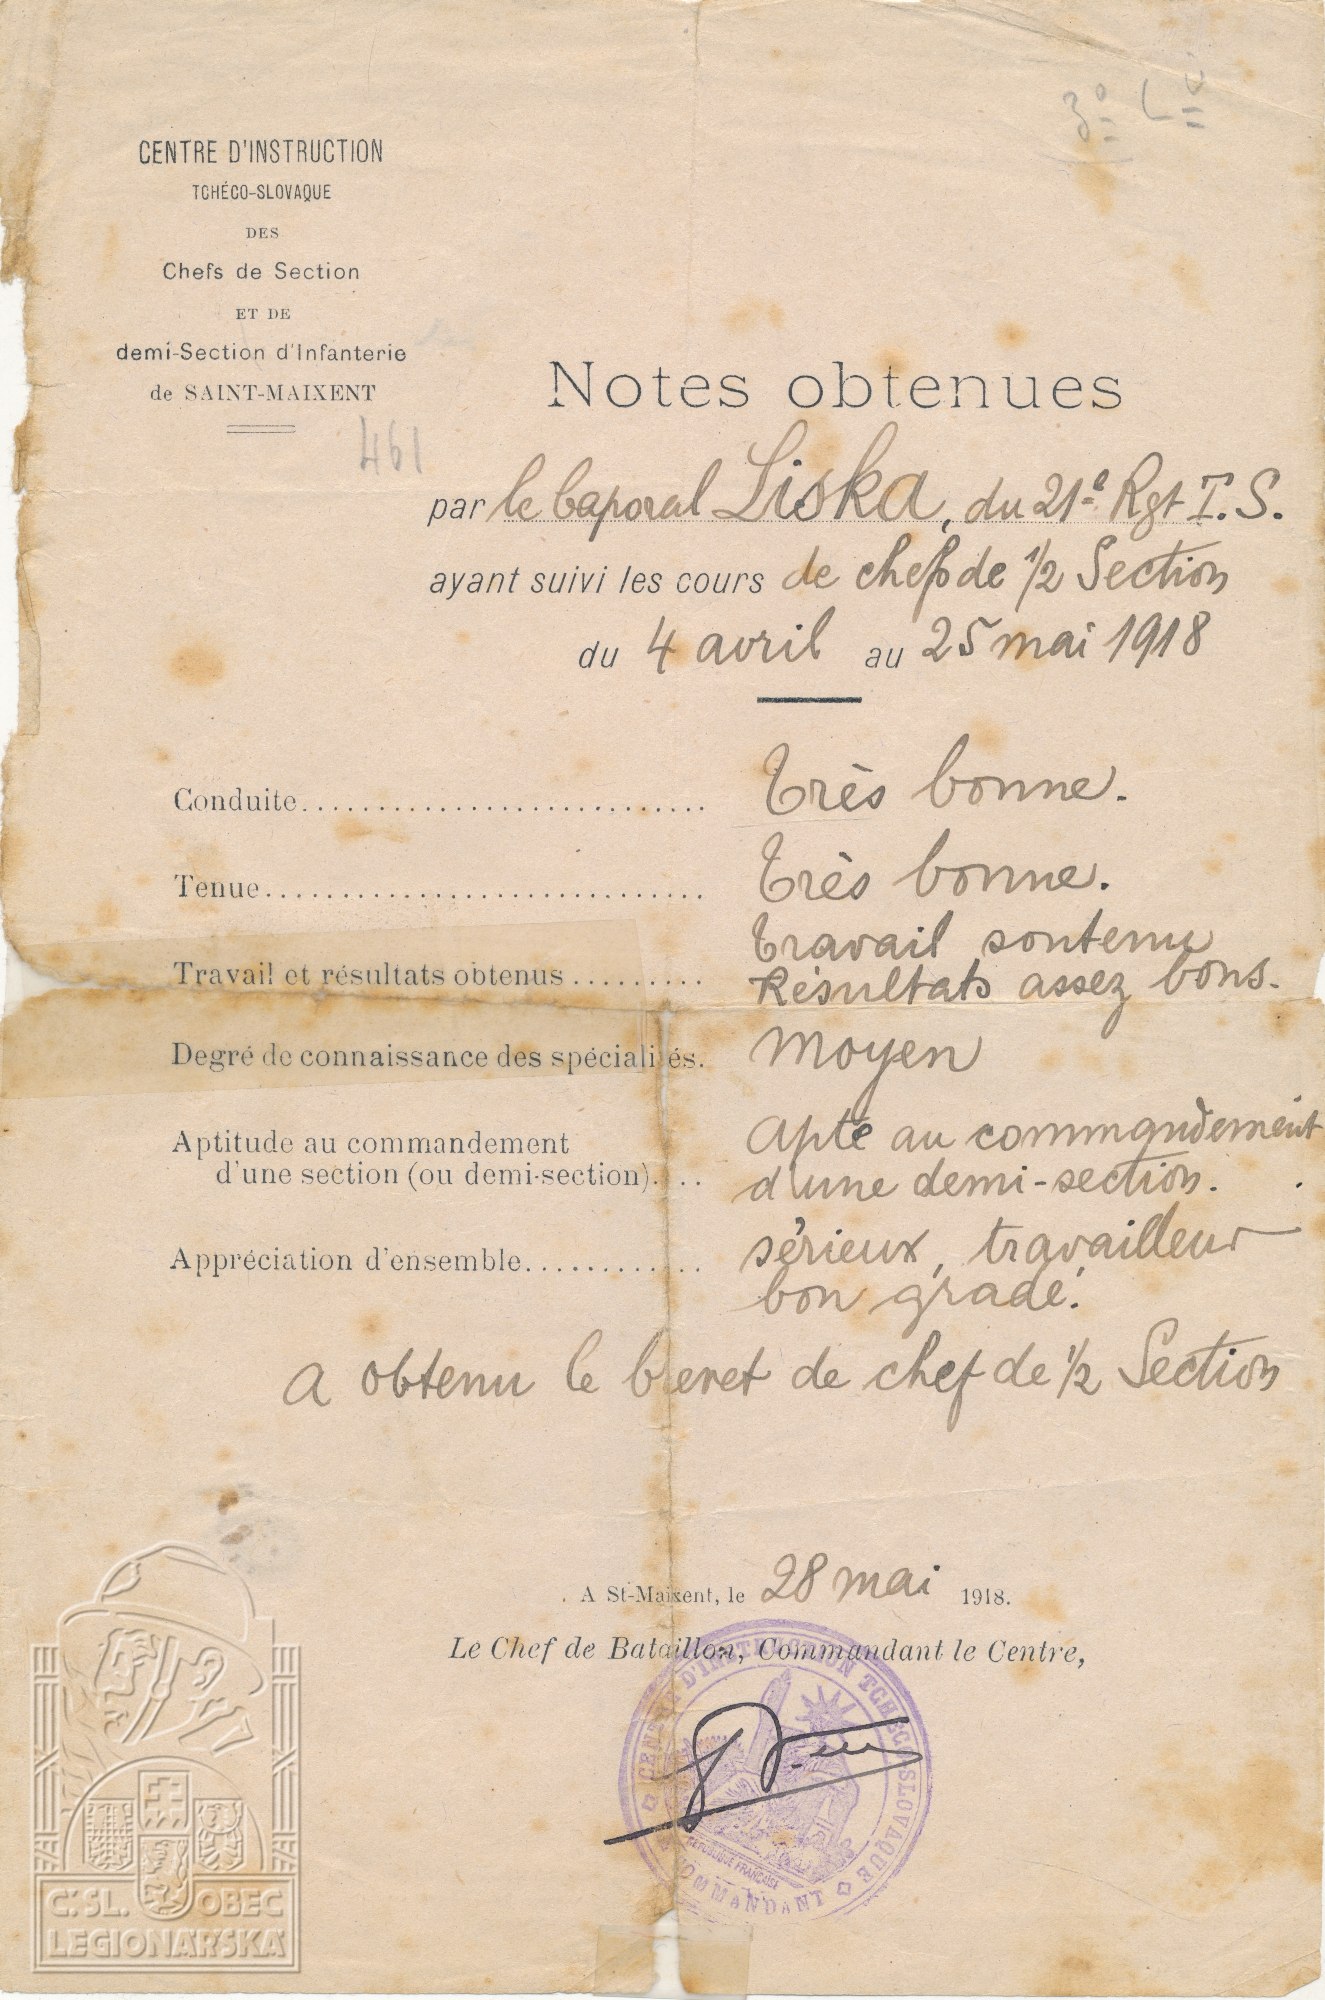 CENTRE D'INSTRUCTION
TCHÉCO-SLOVAQUE
DES
Chefs de Section
ET DE
demi-Section d'Infanterie
de SAINT-MAIXENT
461
Notes obtenues
par le Caporal Liska, du 21e Rgt T.S.
ayant suivi les cours de chef de 1/2 Section
du 4 avril au 25 mai 1918
Conduite........................... Très bonne.
Tenue.............................. Très bonne.
Travail et résultats obtenus ......... Travail soutenu
Résultats assez bons.
Degré de connaissance des spécialités. Moyen
Aptitude au commandement
d'une section (ou demi-section).... Apte au commandement
d'une demi-section.
Appréciation d'ensemble............ sérieux, travailleur
bon gradé.
a obtenu le brevet de chef de 1/2 Section
A St-Maixent, le 28 mai 1918.
Le Chef de Bataillon, Commandant le Centre,
CENTRE D'INSTRUCTION TCHECO-SLOVAQUE
REPUBLIQUE FRANÇAISE
COMMANDANT
Č.SL. OBEC
LEGIONÁŘSKÁ